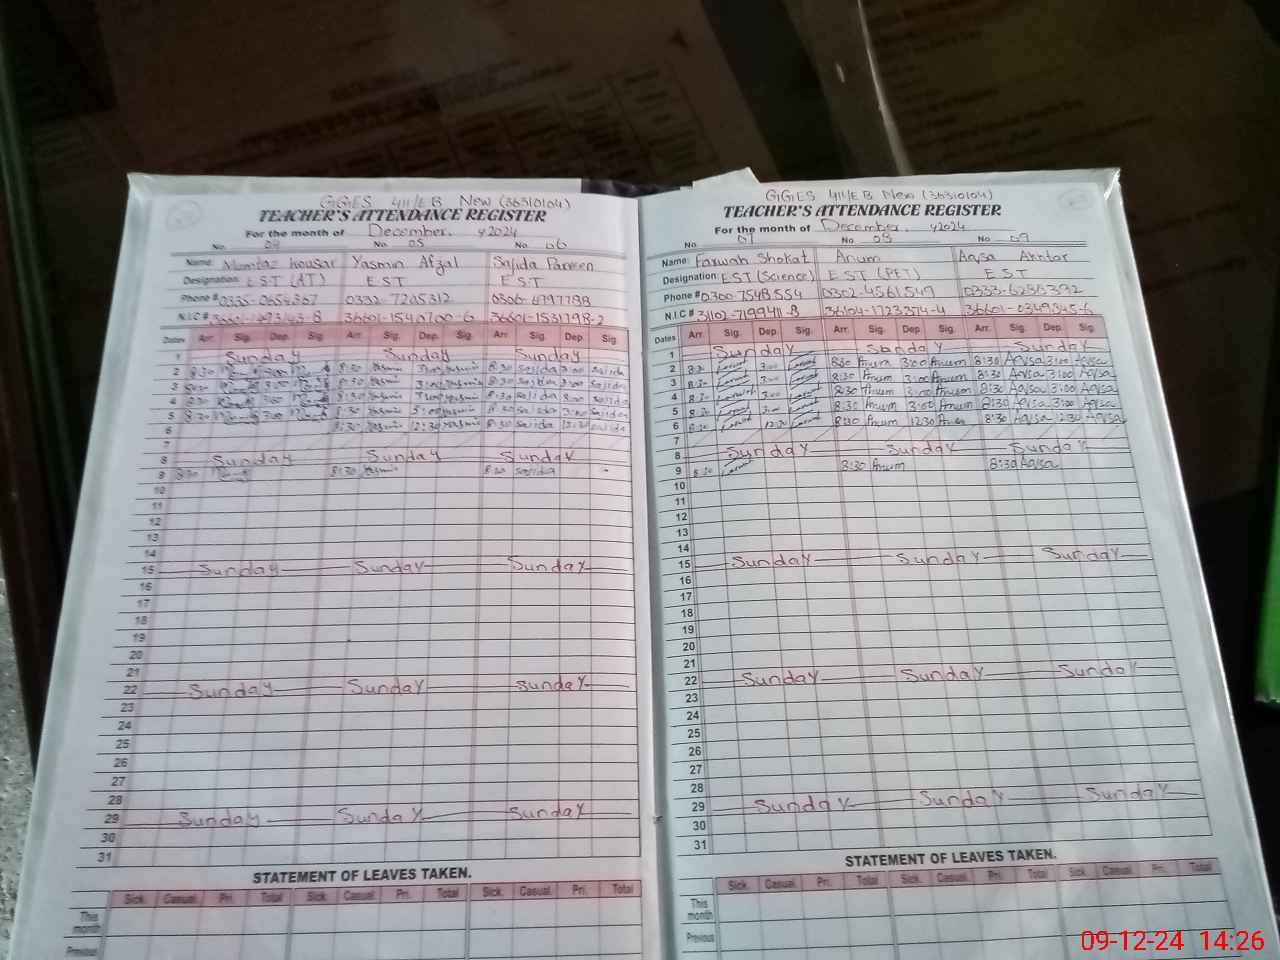 GGES 411/EB New (36310104)
TEACHER'S ATTENDANCE REGISTER
For the month of December. y2024
No. 04 No 05 No 06
Name: Mumtaz kousar Yasmin Afzal Sajida Parveen
Designation: EST (AT) EST EST
Phone # 0335-0654367 0332-7205312 0306-4797788
N.I.C # 36601-1540700-6 36601-1531798-2
Dates Arr. Sig. Dep. Sig. Arr. Sig. Dep. Sig. Arr. Sig. Dep. Sig.
1 Sunday Sunday Sunday
2 8:30 3:00 8:30 Yasmin 3:00 Yasmin 8:30 Sajida 3:00 Sajida
3 8:30 3:00 8:30 Yasmin 3:00 Yasmin 8:30 Sajida 3:00 Sajida
4 8:30 3:00 8:30 Yasmin 3:00 Yasmin 8:30 Sajida 3:00 Sajida
5 8:30 3:00 8:30 Yasmin 3:00 Yasmin 8:30 Sajida 3:00 Sajida
6 8:30 Yasmin 12:30 Yasmin 8:30 Sajida 12:30 Sajida
7
8 Sunday Sunday Sunday
9 8:30 8:30 Yasmin 8:30 Sajida
10
11
12
13
14
15 Sunday Sunday Sunday
16
17
18
19
20
21
22 Sunday Sunday Sunday
23
24
25
26
27
28
29 Sunday Sunday Sunday
30
31
STATEMENT OF LEAVES TAKEN.
Sick. Casual. Pri. Total Sick. Casual. Pri. Total Sick. Casual. Pri. Total
This month
Previous
GGES 411/EB New (36310104)
TEACHER'S ATTENDANCE REGISTER
For the month of December. y2024
No. 07 No 08 No 09
Name: Farwah Shokat Anum Aqsa Akhtar
Designation: EST (Science) EST (PET) EST
Phone # 0300-7548554 0302-4561549
N.I.C # 31102-7199411-8 36104-1723574-4 36601-0349345-6
Dates Arr. Sig. Dep. Sig. Arr. Sig. Dep. Sig. Arr. Sig. Dep. Sig.
1 Sunday Sunday Sunday
2 8:30 3:00 8:30 Anum 3:00 Anum 8:30 Aqsa 3:00 Aqsa
3 8:30 3:00 8:30 Anum 3:00 Anum 8:30 Aqsa 3:00 Aqsa
4 8:30 3:00 8:30 Anum 3:00 Anum 8:30 Aqsa 3:00 Aqsa
5 8:30 3:00 8:30 Anum 3:00 Anum 8:30 Aqsa 3:00 Aqsa
6 8:30 12:30 8:30 Anum 12:30 Anum 8:30 Aqsa 12:30 Aqsa
7
8 Sunday Sunday Sunday
9 8:30 8:30 Anum 8:30 Aqsa
10
11
12
13
14
15 Sunday Sunday Sunday
16
17
18
19
20
21
22 Sunday Sunday Sunday
23
24
25
26
27
28
29 Sunday Sunday Sunday
30
31
STATEMENT OF LEAVES TAKEN.
Sick. Casual. Pri. Total Sick. Casual. Pri. Total Sick. Casual. Pri. Total
This month
Previous
09-12-24 14:26